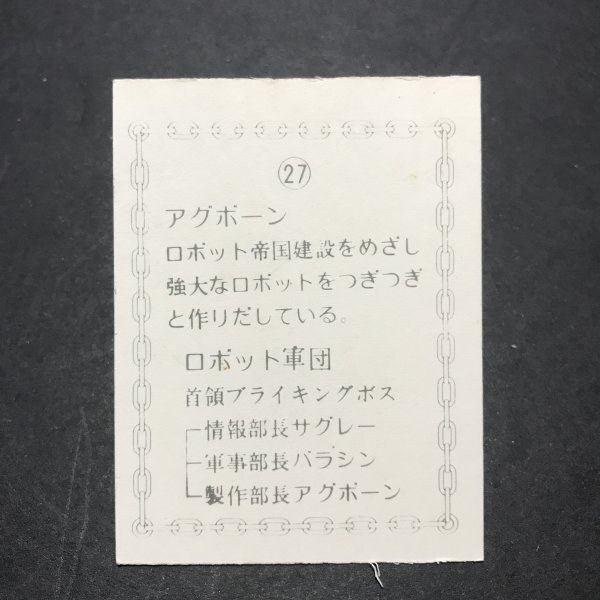 27
アグボーン
ロボット帝国建設をめざし
強大なロボットをつぎつぎ
と作りだしている。
ロボット軍団
首領ブライキングボス
情報部長サグレー
軍事部長バラシン
製作部長アグボーン